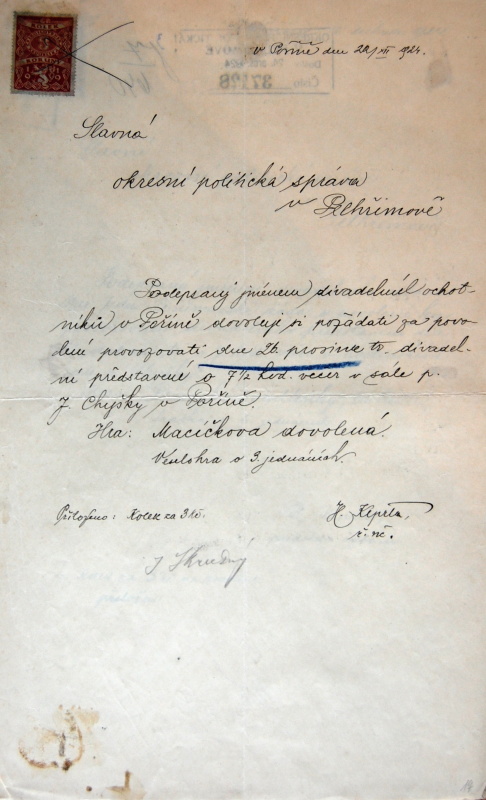 KOLEK
KORUNY
v Poříně dne 22/XII 1924.
37178
Slavná
okresní politická správa
v Pelhřimově
Podepsaný jménem divadelních ochot-
níků v Poříně dovoluje si požádati za povo-
lené provozovati dne 26. prosince tr. divadel-
ní představené o 7 1/2 hod. večer v sále p.
J. Chyšky v Poříně.
Hra: Macíčkova dovolená.
Veselohra o 3. jednáních.
Přiloženo: Kolek za 3 Kč.
ř. uč.